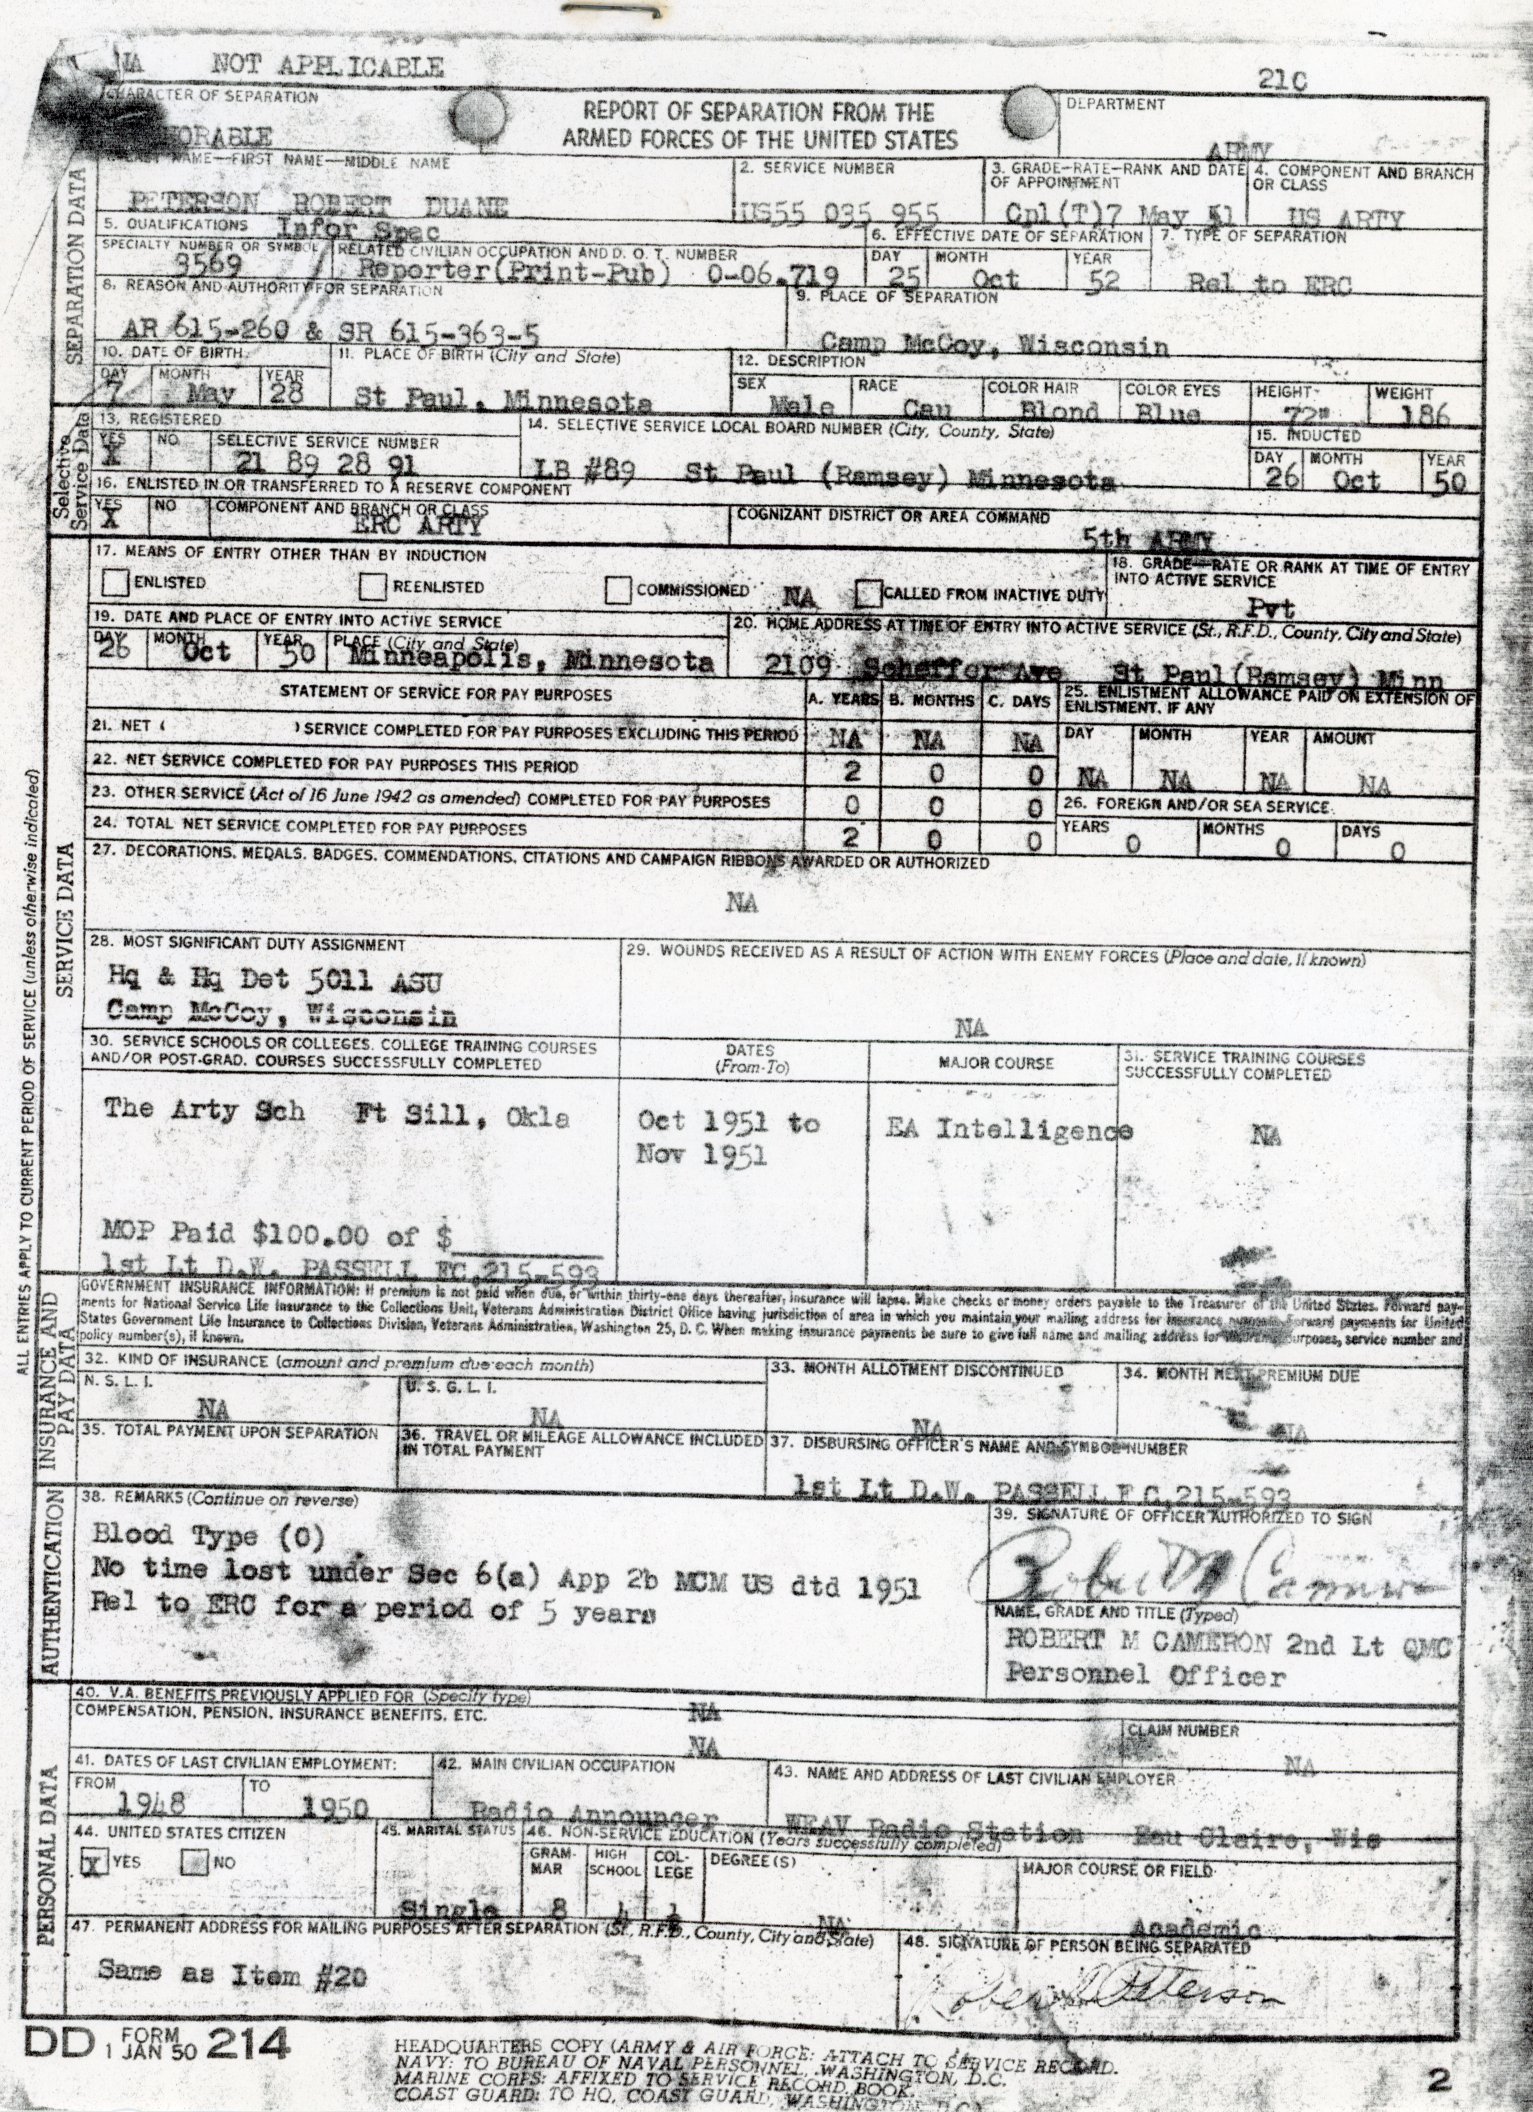 NA NOT APPLICABLE
21C
CHARACTER OF SEPARATION
REPORT OF SEPARATION FROM THE
ARMED FORCES OF THE UNITED STATES
DEPARTMENT
ARMY
LAST NAME—FIRST NAME—MIDDLE NAME
PETERSON ROBERT DUANE
2. SERVICE NUMBER
US55 035 955
3. GRADE—RATE—RANK AND DATE
OF APPOINTMENT
Cpl(T)7 May 51
4. COMPONENT AND BRANCH
OR CLASS
US ARTY
SEPARATION DATA
5. QUALIFICATIONS Infor Spec
SPECIALTY NUMBER OR SYMBOL
3569
RELATED CIVILIAN OCCUPATION AND D. O. T. NUMBER
Reporter(Print-Pub) 0-06.719
6. EFFECTIVE DATE OF SEPARATION
DAY MONTH YEAR
25 Oct 52
7. TYPE OF SEPARATION
Rel to ERC
8. REASON AND AUTHORITY FOR SEPARATION
AR 615-260 & SR 615-363-5
9. PLACE OF SEPARATION
Camp McCoy, Wisconsin
10. DATE OF BIRTH
DAY MONTH YEAR
7 May 28
11. PLACE OF BIRTH (City and State)
St Paul, Minnesota
12. DESCRIPTION
SEX RACE COLOR HAIR COLOR EYES HEIGHT WEIGHT
Male Cau Blond Blue 72" 186
Selective
Service Data
13. REGISTERED
YES NO SELECTIVE SERVICE NUMBER
X 21 89 28 91
14. SELECTIVE SERVICE LOCAL BOARD NUMBER (City, County, State)
LB #89 St Paul (Ramsey) Minnesota
15. INDUCTED
DAY MONTH YEAR
26 Oct 50
16. ENLISTED IN OR TRANSFERRED TO A RESERVE COMPONENT
YES NO COMPONENT AND BRANCH OR CLASS
X ERC ARTY
COGNIZANT DISTRICT OR AREA COMMAND
5th ARMY
17. MEANS OF ENTRY OTHER THAN BY INDUCTION
ENLISTED REENLISTED COMMISSIONED NA CALLED FROM INACTIVE DUTY
18. GRADE—RATE OR RANK AT TIME OF ENTRY
INTO ACTIVE SERVICE
Pvt
19. DATE AND PLACE OF ENTRY INTO ACTIVE SERVICE
DAY MONTH YEAR PLACE (City and State)
26 Oct 50 Minneapolis, Minnesota
20. HOME ADDRESS AT TIME OF ENTRY INTO ACTIVE SERVICE (St., R.F.D., County, City and State)
2109 Scheffer Ave St Paul(Ramsey) Minn
STATEMENT OF SERVICE FOR PAY PURPOSES
A. YEARS B. MONTHS C. DAYS
21. NET ( ) SERVICE COMPLETED FOR PAY PURPOSES EXCLUDING THIS PERIOD NA NA NA
22. NET SERVICE COMPLETED FOR PAY PURPOSES THIS PERIOD 2 0 0
23. OTHER SERVICE (Act of 16 June 1942 as amended) COMPLETED FOR PAY PURPOSES 0 0 0
24. TOTAL NET SERVICE COMPLETED FOR PAY PURPOSES 2 0 0
25. ENLISTMENT ALLOWANCE PAID ON EXTENSION OF
ENLISTMENT, IF ANY
DAY MONTH YEAR AMOUNT
NA NA NA NA
26. FOREIGN AND/OR SEA SERVICE
YEARS MONTHS DAYS
0 0 0
27. DECORATIONS, MEDALS, BADGES, COMMENDATIONS, CITATIONS AND CAMPAIGN RIBBONS AWARDED OR AUTHORIZED
NA
SERVICE DATA
ALL ENTRIES APPLY TO CURRENT PERIOD OF SERVICE (unless otherwise indicated)
28. MOST SIGNIFICANT DUTY ASSIGNMENT
Hq & Hq Det 5011 ASU
Camp McCoy, Wisconsin
29. WOUNDS RECEIVED AS A RESULT OF ACTION WITH ENEMY FORCES (Place and date, if known)
NA
30. SERVICE SCHOOLS OR COLLEGES, COLLEGE TRAINING COURSES
AND/OR POST-GRAD. COURSES SUCCESSFULLY COMPLETED
DATES
(From-To)
MAJOR COURSE
31. SERVICE TRAINING COURSES
SUCCESSFULLY COMPLETED
The Arty Sch Ft Sill, Okla
Oct 1951 to
Nov 1951
EA Intelligence
NA
MOP Paid $100.00 of $
1st Lt D.W. PASSELL FC,215-593
INSURANCE AND
PAY DATA
GOVERNMENT INSURANCE INFORMATION: If premium is not paid when due, or within thirty-one days thereafter, insurance will lapse. Make checks or money orders payable to the Treasurer of the United States. Forward pay-
ments for National Service Life Insurance to the Collections Unit, Veterans Administration District Office having jurisdiction of area in which you maintain your mailing address for insurance purposes. Forward payments for United
States Government Life Insurance to Collections Division, Veterans Administration, Washington 25, D. C. When making insurance payments be sure to give full name and mailing address for insurance purposes, service number and
policy number(s), if known.
32. KIND OF INSURANCE (amount and premium due each month)
N. S. L. I.
NA
U. S. G. L. I.
NA
33. MONTH ALLOTMENT DISCONTINUED
NA
34. MONTH NEXT PREMIUM DUE
NA
35. TOTAL PAYMENT UPON SEPARATION
36. TRAVEL OR MILEAGE ALLOWANCE INCLUDED
IN TOTAL PAYMENT
37. DISBURSING OFFICER'S NAME AND SYMBOL NUMBER
1st Lt D.W. PASSELL F C,215-593
AUTHENTICATION
38. REMARKS (Continue on reverse)
Blood Type (O)
No time lost under Sec 6(a) App 2b MCM US dtd 1951
Rel to ERC for a period of 5 years
39. SIGNATURE OF OFFICER AUTHORIZED TO SIGN
Robert M Cameron
NAME, GRADE AND TITLE (Typed)
ROBERT M CAMERON 2nd Lt QMC
Personnel Officer
PERSONAL DATA
40. V.A. BENEFITS PREVIOUSLY APPLIED FOR (Specify type)
COMPENSATION, PENSION, INSURANCE BENEFITS, ETC.
NA
NA
CLAIM NUMBER
NA
41. DATES OF LAST CIVILIAN EMPLOYMENT:
FROM TO
1948 1950
42. MAIN CIVILIAN OCCUPATION
Radio Announcer
43. NAME AND ADDRESS OF LAST CIVILIAN EMPLOYER
WEAV Radio Station Eau Claire, Wis
44. UNITED STATES CITIZEN
X YES NO
45. MARITAL STATUS
Single
46. NON-SERVICE EDUCATION (Years successfully completed)
GRAM-
MAR
HIGH
SCHOOL
COL-
LEGE
DEGREE(S)
MAJOR COURSE OR FIELD
8 4 NA Academic
47. PERMANENT ADDRESS FOR MAILING PURPOSES AFTER SEPARATION (St., R.F.D., County, City and State)
Same as Item #20
48. SIGNATURE OF PERSON BEING SEPARATED
Robert D Peterson
DD FORM 1 JAN 50 214
HEADQUARTERS COPY (ARMY & AIR FORCE: ATTACH TO SERVICE RECORD.
NAVY: TO BUREAU OF NAVAL PERSONNEL, WASHINGTON, D.C.
MARINE CORPS: AFFIXED TO SERVICE RECORD BOOK.
COAST GUARD: TO HQ, COAST GUARD, WASHINGTON, D.C.)
2